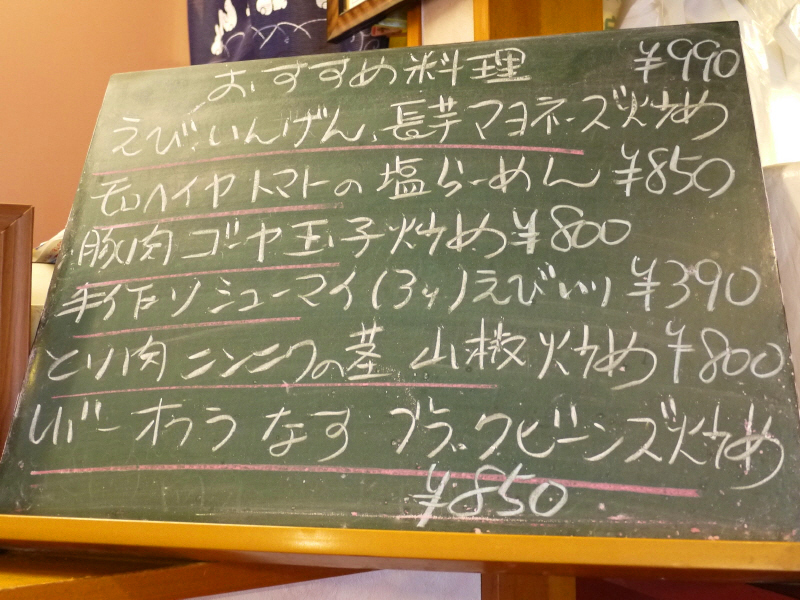 おすすめ料理 ¥990
えび.いんげん.長芋マヨネーズ炒め
モロヘイヤトマトの塩らーめん ¥850
豚肉ゴーヤ玉子炒め¥800
手作りシューマイ(3ヶ)えび入り ¥390
とり肉ニンニクの茎 山椒炒め¥800
レバーオクラ なす ブラックビーンズ炒め
¥850